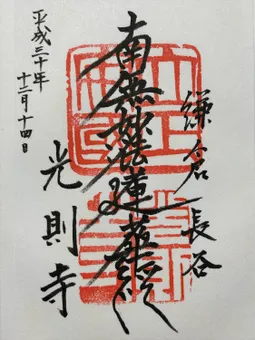 鎌倉長谷
南無妙法蓮華経
光則寺
平成三十年
十二月十四日
立正
安國